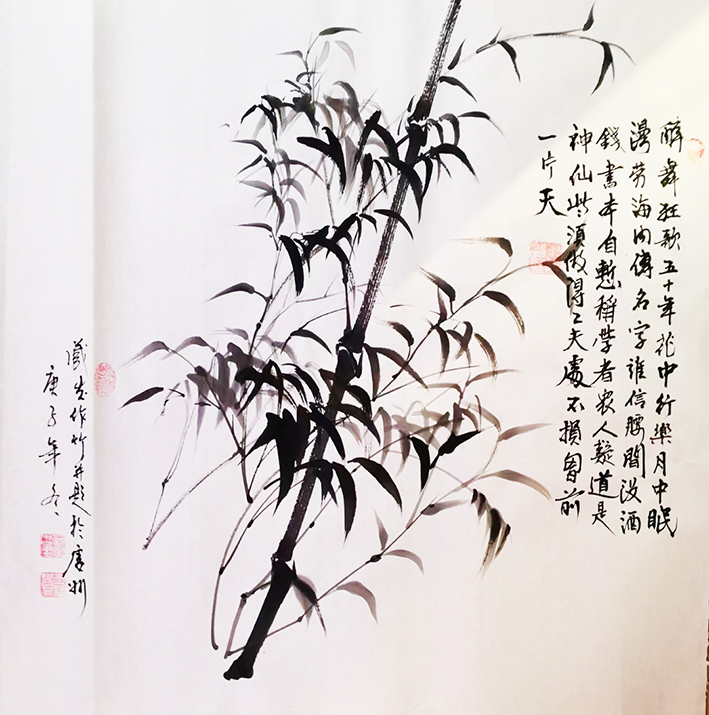 醉舞狂歌五十年花中行樂月中眠
漫勞海內傳名字誰信腰間沒酒
錢書本自慙稱學者眾人疑道是
神仙些須做得工夫處不損胷前
一片天
作竹并題於唐州
庚子年冬